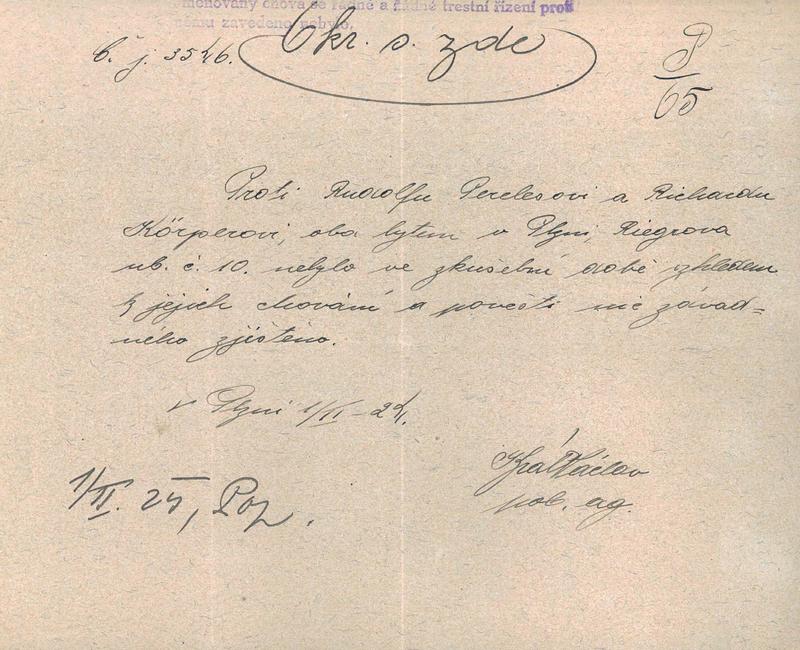 menovaný chová se řádně a žádné trestní řízení proti
němu zavedeno nebylo.
Okr. s. zde
č. j. 3526.
P
65
Proti Rudolfu Perelesovi a Richardu
Körperovi, oba bytem v Plzni, Riegrova
ul. č. 10. nebylo ve zkušební době vzhledem
k jejich chování a pověsti nic závad=
ného zjištěno.
V Plzni 1/II - 24.
Král Václav
pol. ag.
1/II. 25,